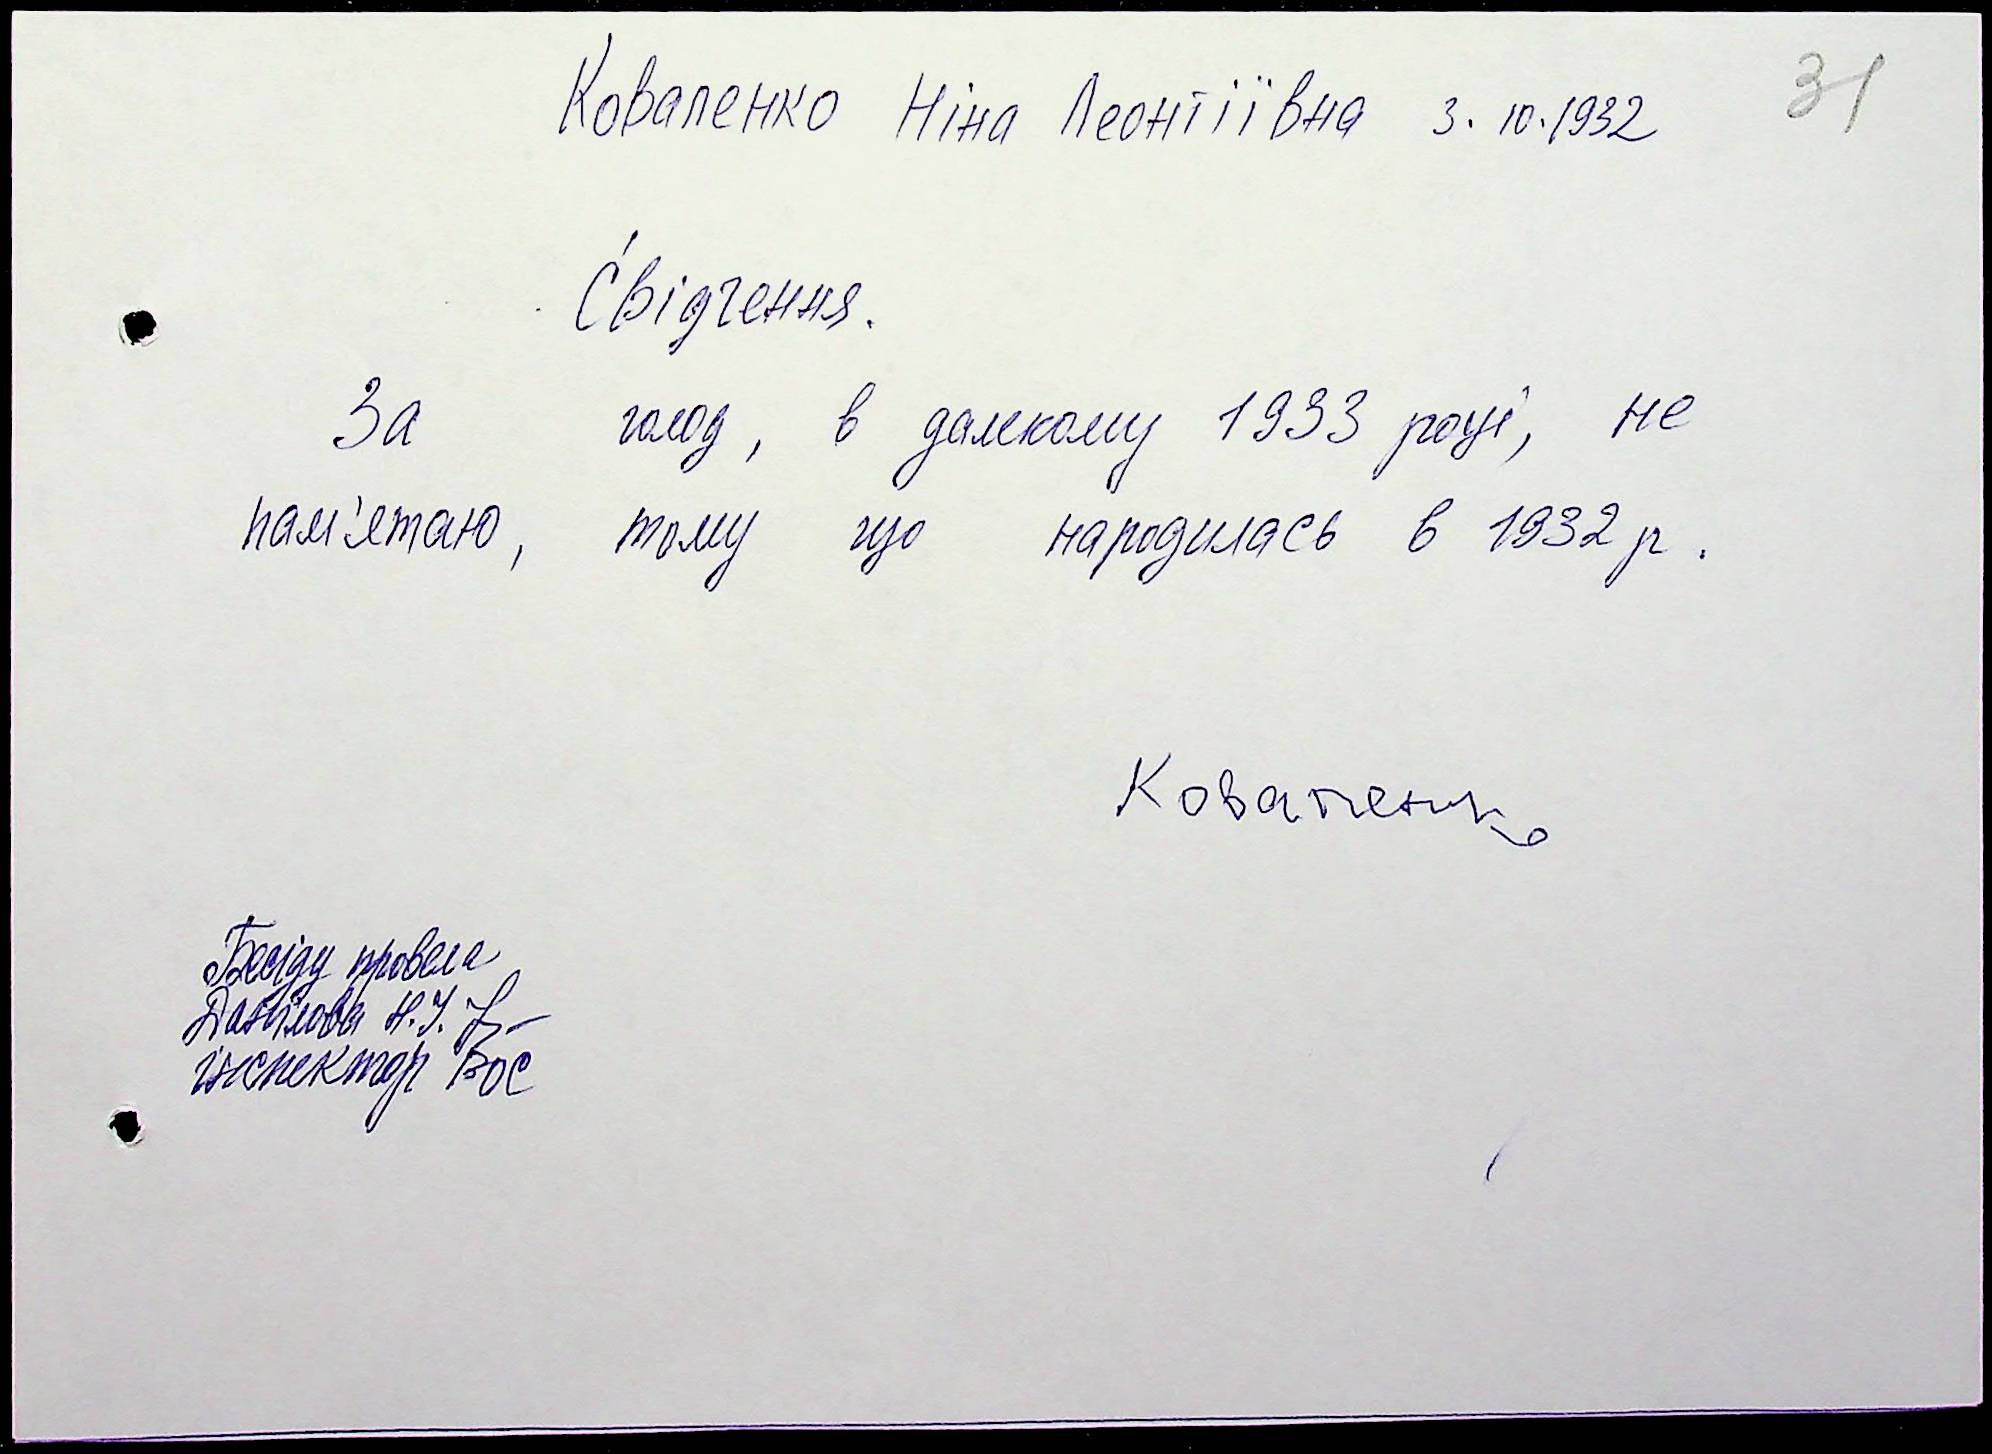 Коваленко Ніна Леонтіївна 3.10.1932
31
Свідчення.
За голод, в далекому 1933 році, не
пам'ятаю, тому що народилась в 1932 р.
Коваленко
Бесіду провела
Данілова Н.І.
інспектор ВОС